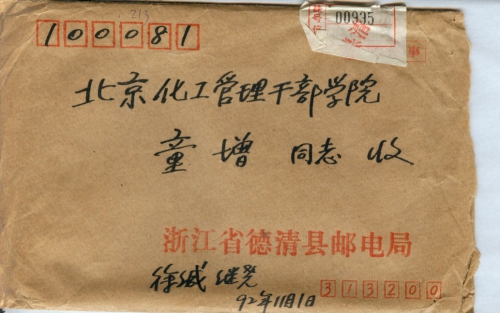 213
00935
100081
北京化工管理干部学院
童增 同志 收
浙江省德清县邮电局
313200
92年11月1日